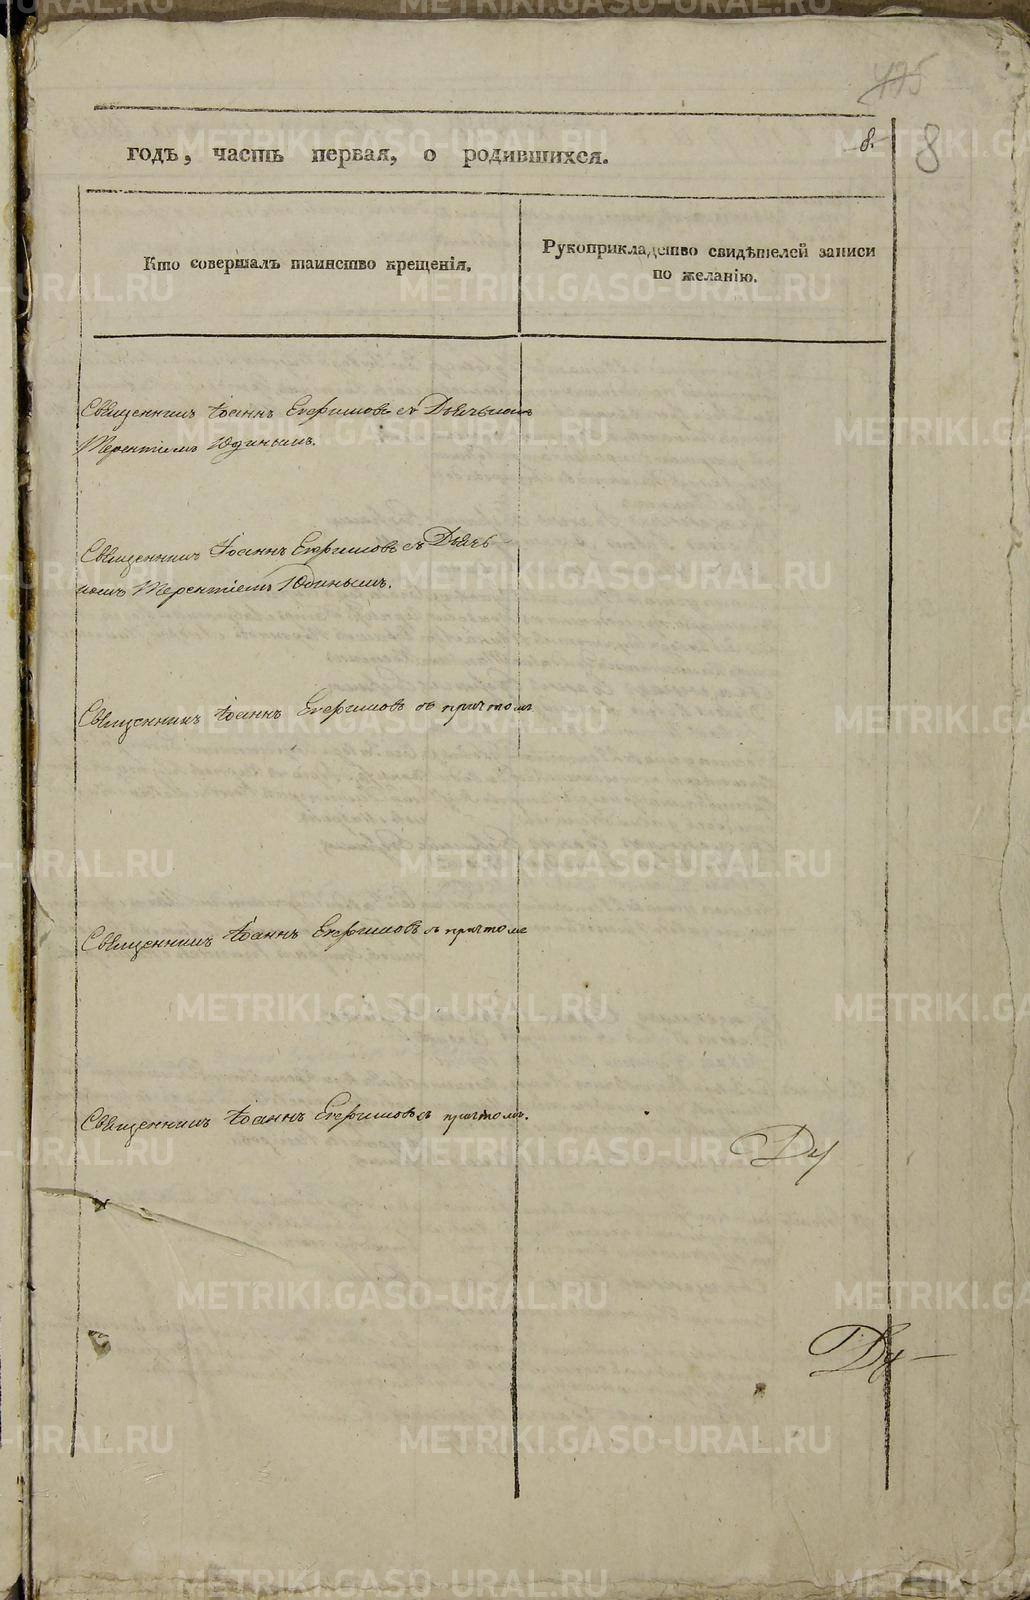 475
годъ, часть первая, о родившихся.
8.
8
Кто совершалъ таинство крещенія.
Рукоприкладство свидѣтелей записи
по желанію.
Священникъ Іоаннъ Евфимовъ съ Дьячькомъ
Терентіемъ Юдинымъ.
Священникъ Іоаннъ Евфимовъ съ Дьячь
комъ Терентіемъ Юдинымъ.
Священникъ Іоаннъ Евфимовъ съ причтомъ
Священникъ Іоаннъ Евфимовъ съ причтомъ
Священникъ Іоаннъ Евфимовъ съ причтомъ.
METRIKI.GASO-URAL.RU